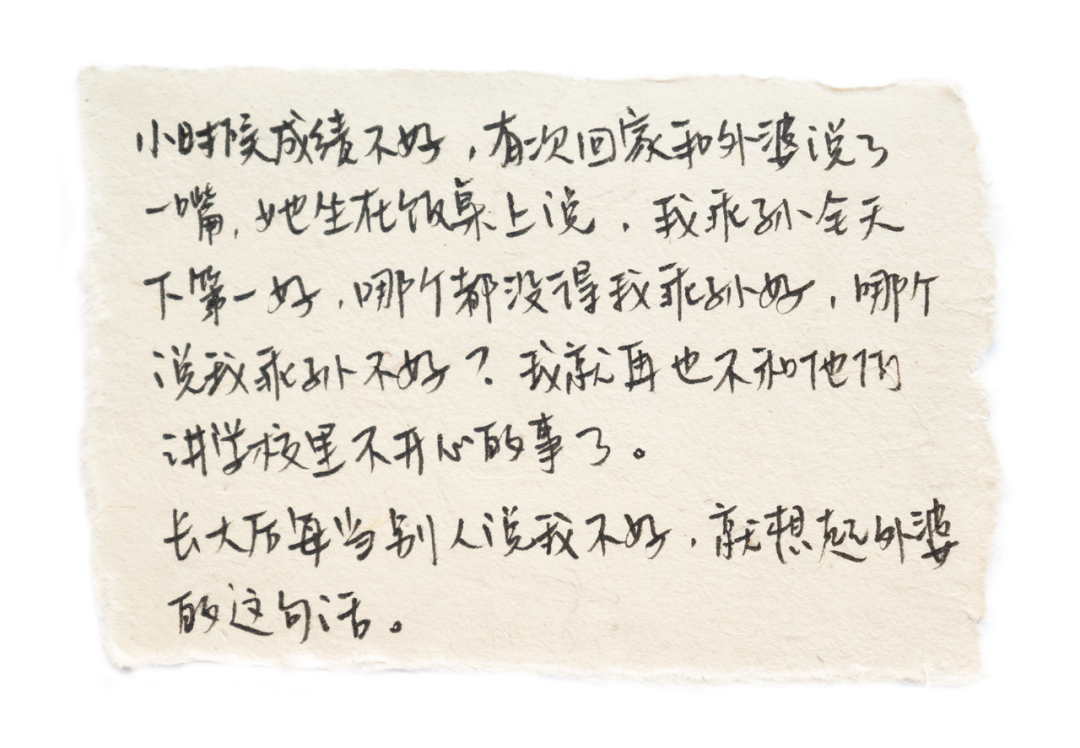 小时候成绩不好，有次回家和外婆说了
一嘴，她坐在饭桌上说，我乖孙全天
下第一好，哪个都没得我乖孙好，哪个
说我乖孙不好？我就再也不和他们
讲学校里不开心的事了。
长大后每当别人说我不好，就想起外婆
的这句话。